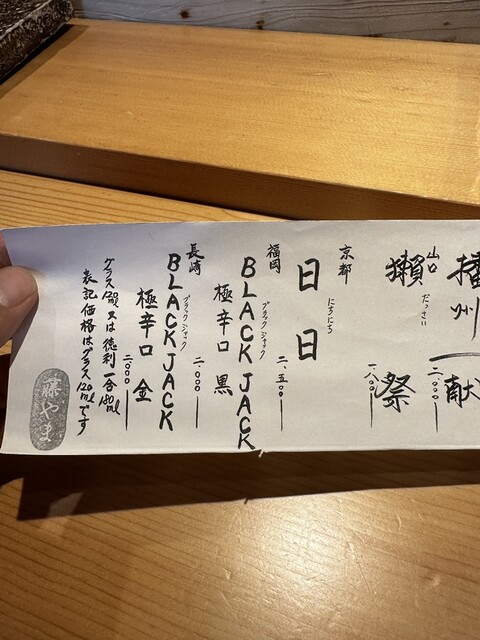 播州一献
二、〇〇〇
山口
獺祭
だっさい
一、八〇〇
京都
日日
にちにち
二、五〇〇
福岡
ブラックジャック
BLACK JACK
極辛口 黒
二、〇〇〇
長崎
ブラックジャック
BLACK JACK
極辛口 金
二、〇〇〇
グラス120ml又は徳利一合180ml
表記価格はグラス120mlです
藤やま